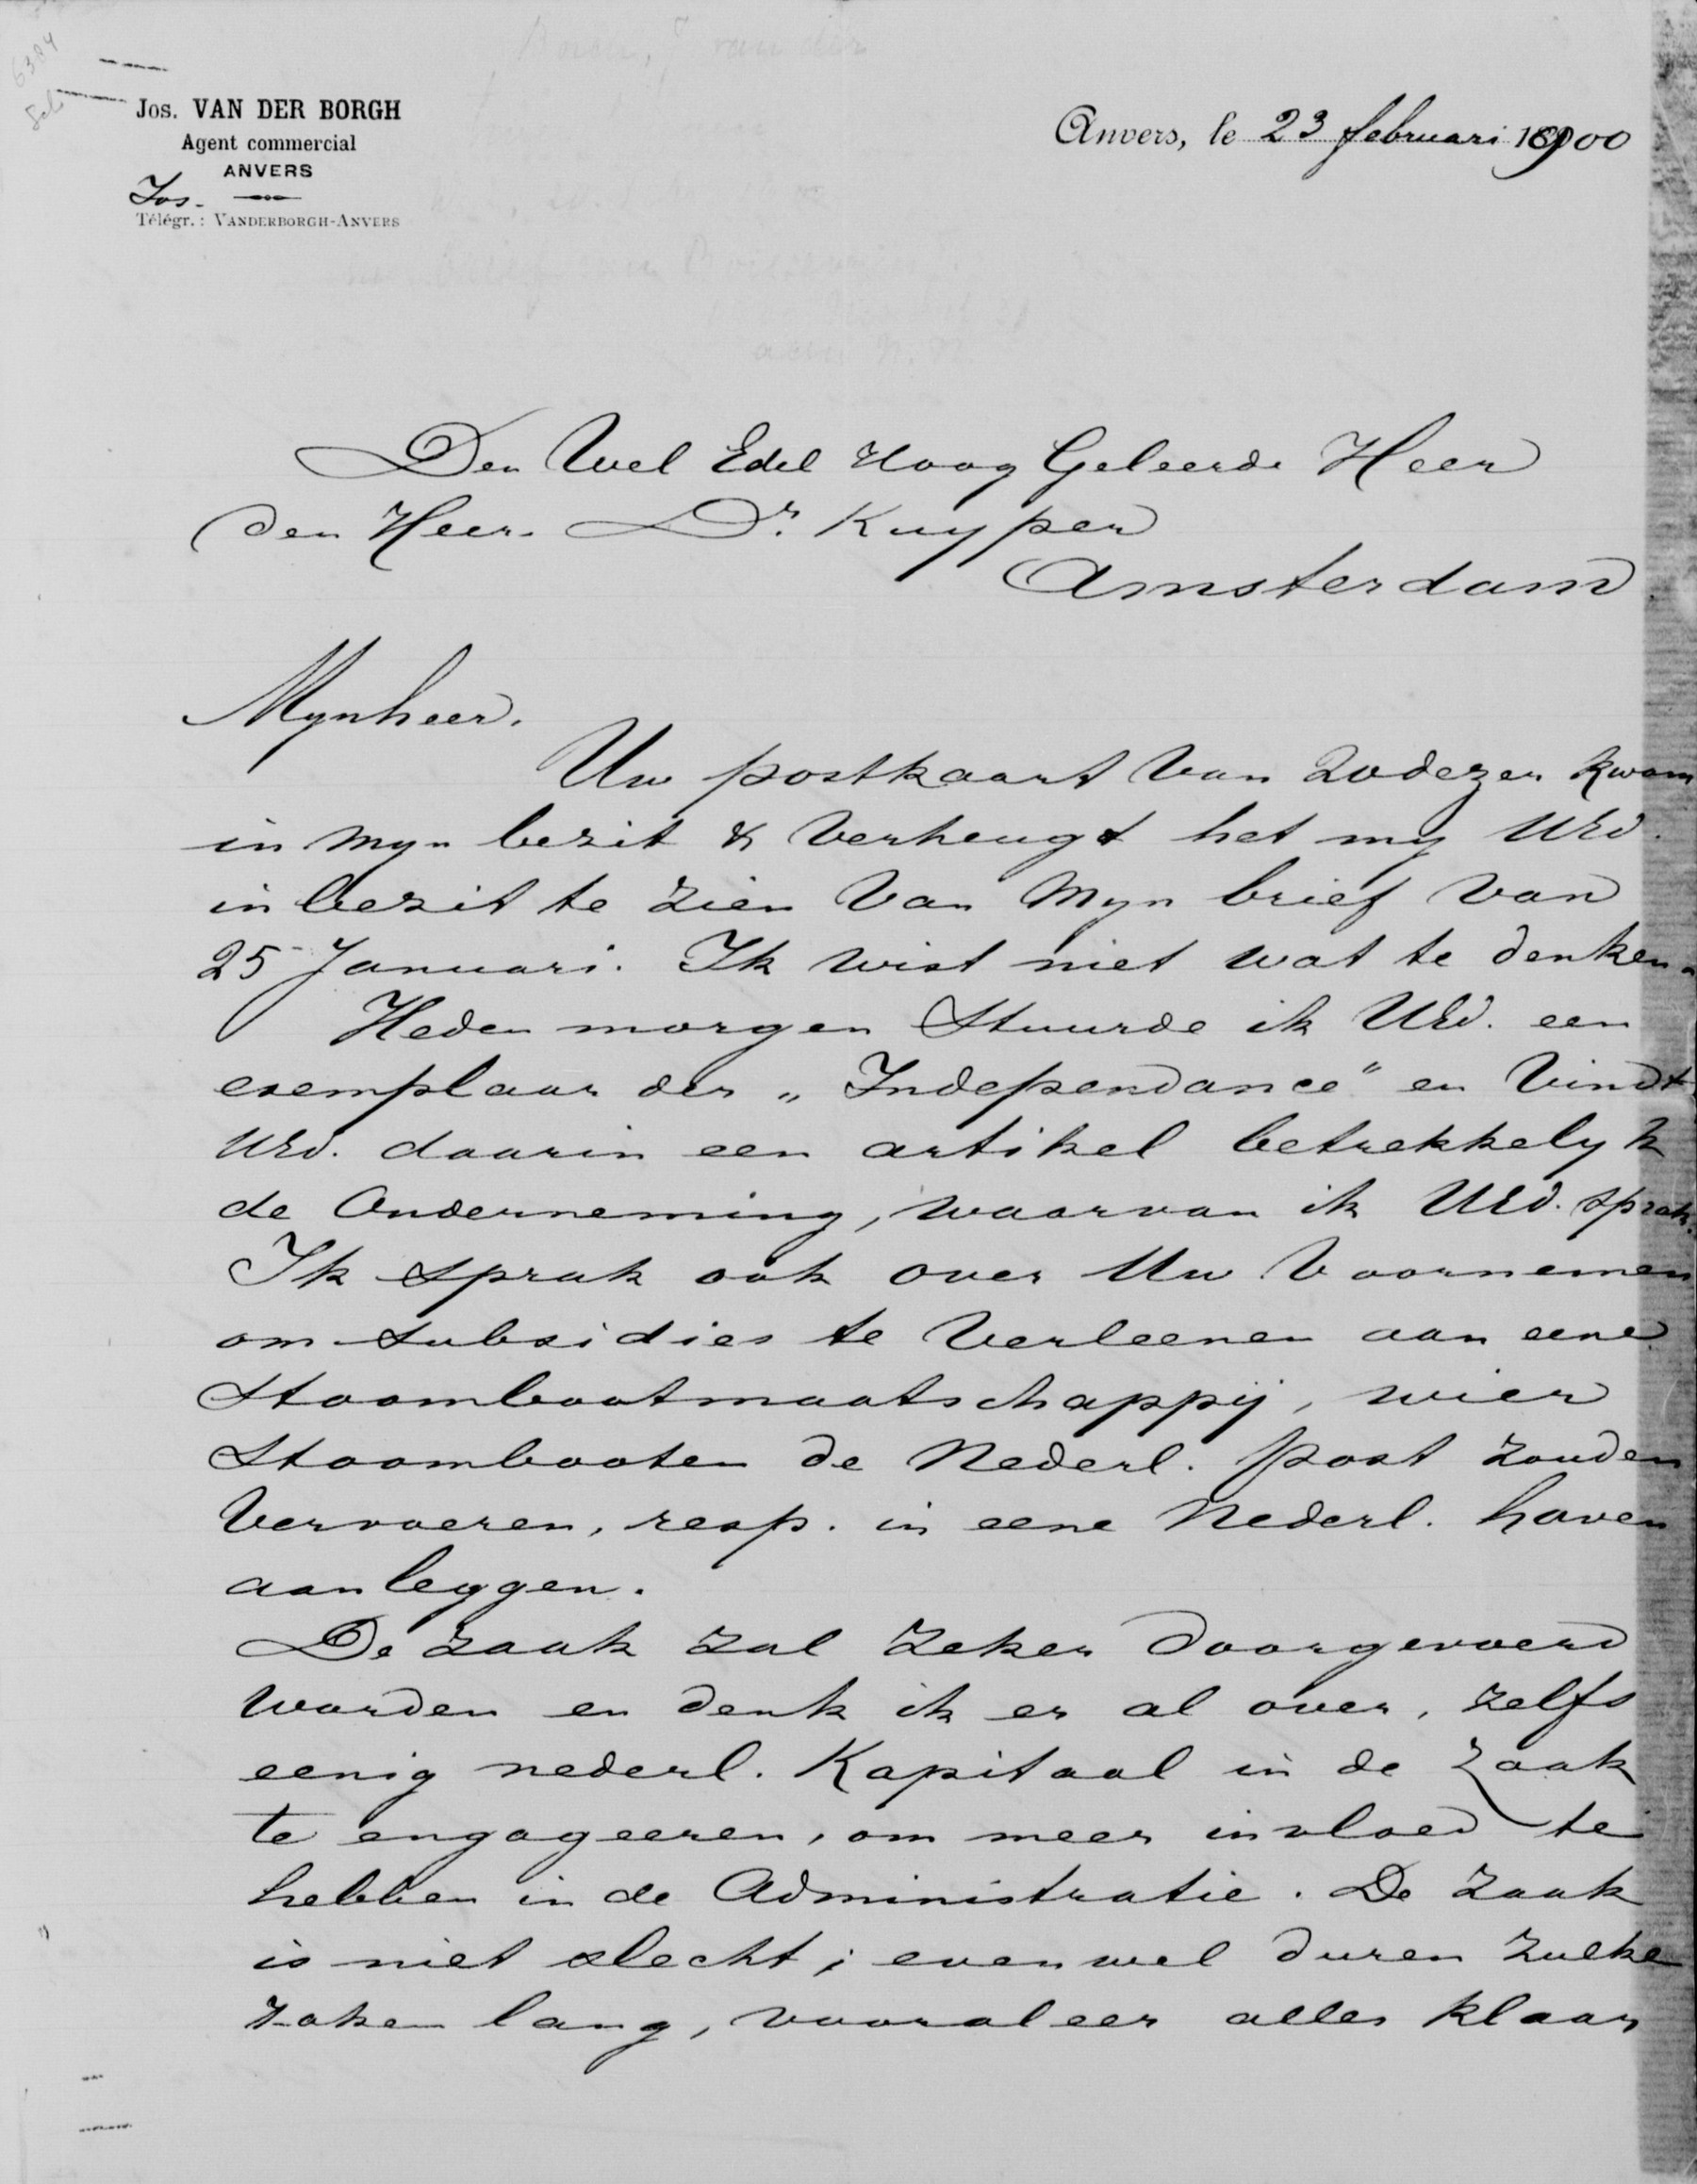 Jos. VAN DER BORGH
Agent commercial
ANVERS
Jos.
Télégr.: VANDERBORGH-ANVERS
Anvers, le 23 februari 1900
Den Wel Edel Hoog Geleerde Heer
den Heer Dr. Kuyper
Amsterdam
Mynheer.
Uw postkaart van 20 dezer kwam
in myn bezit & verheugt het my UEd.
in bezit te zien van myn brief van
25 Januari. Ik wist niet wat te denken.
Heden morgen stuurde ik UEd. een
exemplaar der „Independance" en vindt
UEd. daarin een artikel betrekkelyk
de Onderneming, waarvan ik UEd. sprak.
Ik sprak ook over Uw voornemen
om subsidies te verleenen aan eene
stoombootmaatschappij, wier
stoombooten de Nederl. post zouden
vervoeren, resp. in eene Nederl. haven
aanleggen.
De zaak zal zeker doorgevoerd
worden en denk ik er al over, zelfs
eenig nederl. Kapitaal in de zaak
te engageeren, om meer invloed te
hebben in de Administratie. De zaak
is niet slecht; evenwel duren zulke
zaken lang, vooraleer alles klaar